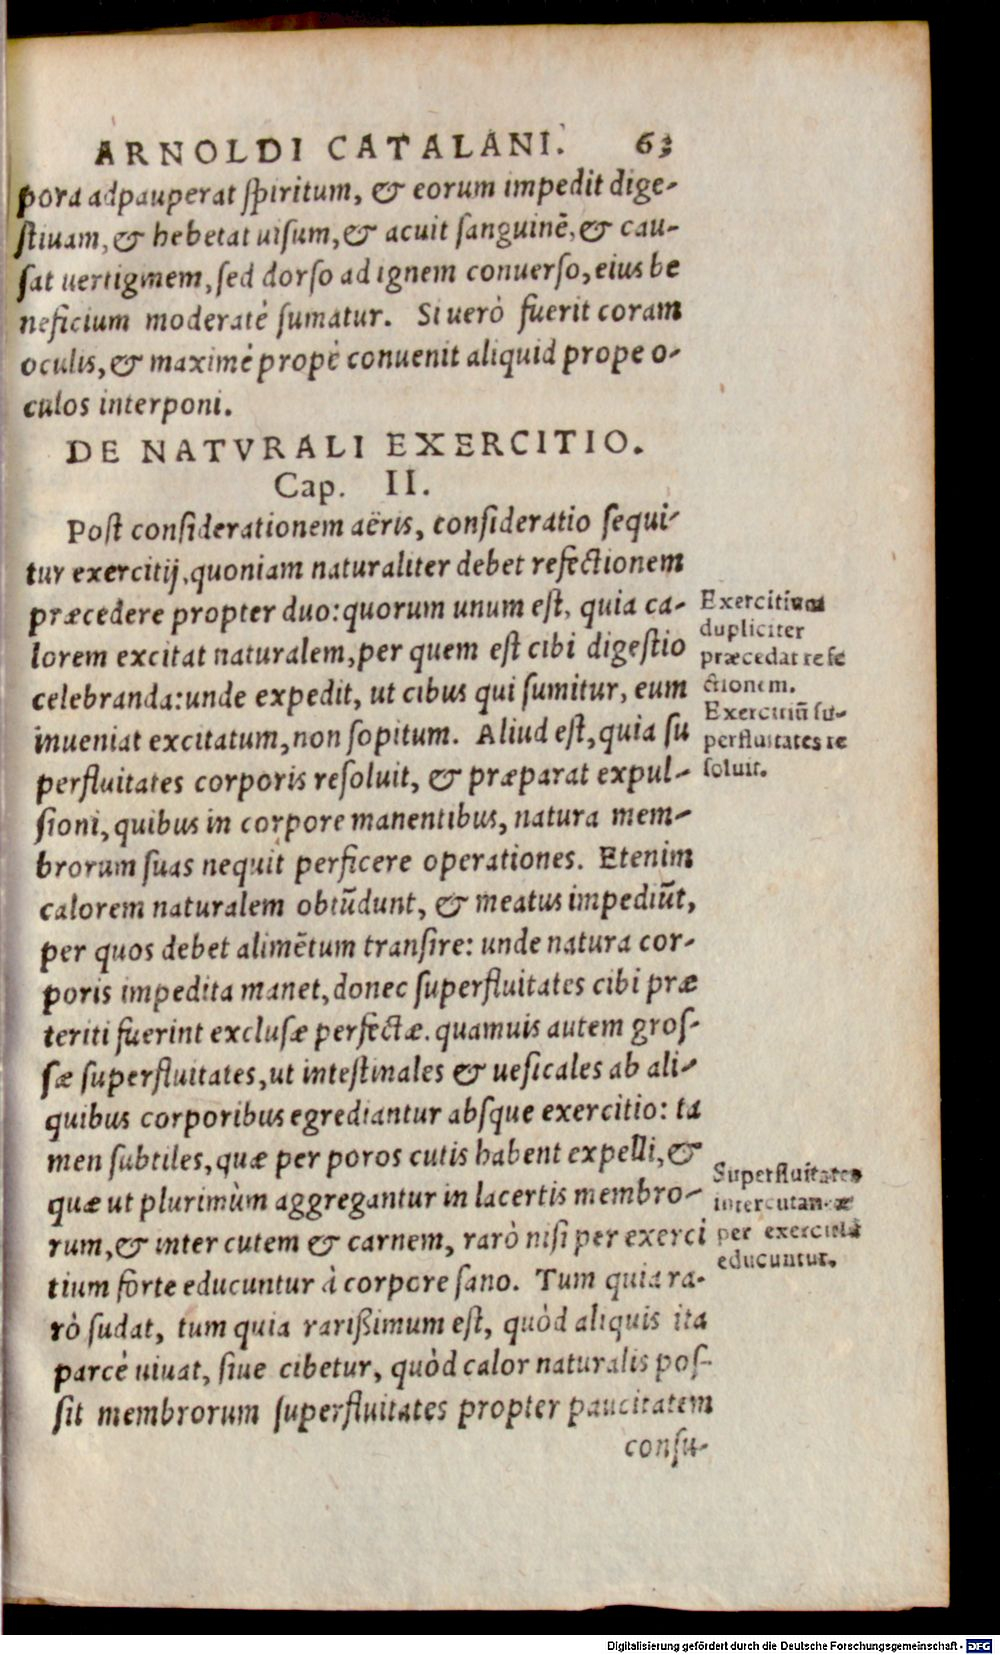 ARNOLDI CATALANI. 63
pora adpauperat spiritum, & eorum impedit dige-
stiuam, & hebetat uisum, & acuit sanguinẽ, & cau-
sat uertiginem, sed dorso ad ignem conuerso, eius be
neficium moderatè sumatur. Si uerò fuerit coram
oculis, & maximè propè conuenit aliquid prope o-
culos interponi.
DE NATVRALI EXERCITIO.
Cap. II.
Post considerationem aëris, consideratio sequi-
tur exercitij, quoniam naturaliter debet refectionem
præcedere propter duo: quorum unum est, quia ca-
lorem excitat naturalem, per quem est cibi digestio
celebranda: unde expedit, ut cibus qui sumitur, eum
inueniat excitatum, non sopitum. Aliud est, quia su
perfluitates corporis resoluit, & præparat expul-
sioni, quibus in corpore manentibus, natura mem-
brorum suas nequit perficere operationes. Etenim
calorem naturalem obtũdunt, & meatus impediũt,
per quos debet alimẽtum transire: unde natura cor-
poris impedita manet, donec superfluitates cibi præ
teriti fuerint exclusæ perfectæ. quamuis autem gros-
sæ superfluitates, ut intestinales & uesicales ab ali-
quibus corporibus egrediantur absque exercitio: ta
men subtiles, quæ per poros cutis habent expelli, &
quæ ut plurimùm aggregantur in lacertis membro-
rum, & inter cutem & carnem, rarò nisi per exerci
tium forte educuntur à corpore sano. Tum quia ra-
rò sudat, tum quia rarißimum est, quòd aliquis ita
parcè uiuat, siue cibetur, quòd calor naturalis pos-
sit membrorum superfluitates propter paucitatem
consu-
Exercitium
dupliciter
præcedat refe
ctionem.
Exercitiũ su-
perfluitates re
soluit.
Superfluitates
intercutaneæ
per exercitiũ
educuntur.
Digitalisierung gefördert durch die Deutsche Forschungsgemeinschaft - DFG